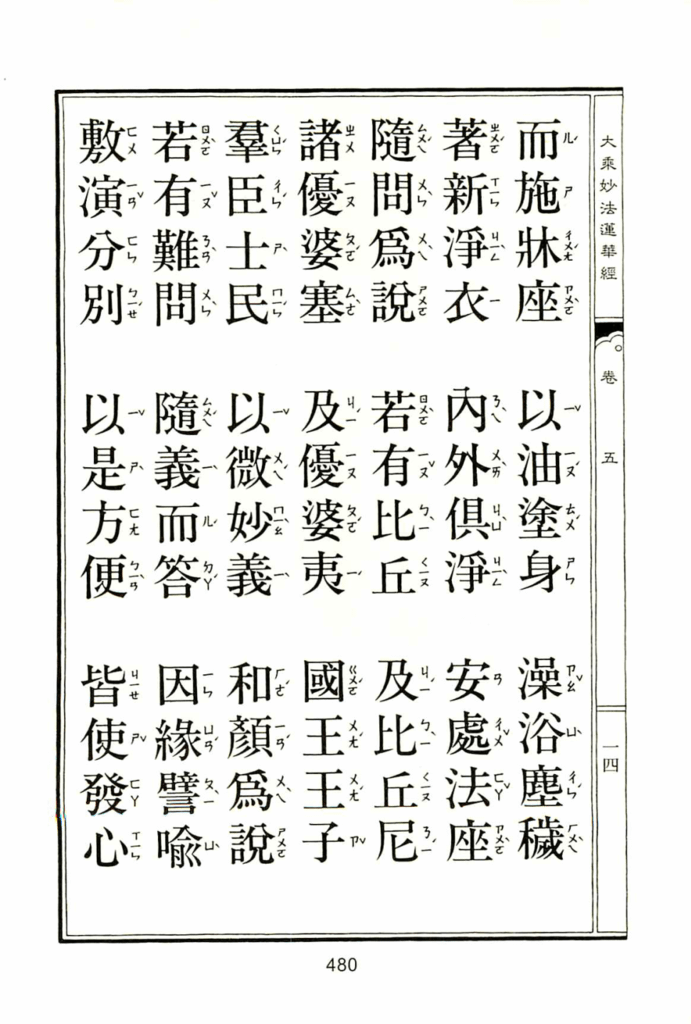 大乘妙法蓮華經　卷五　一四
而施牀座　以油塗身　澡浴塵穢
著新淨衣　內外俱淨　安處法座
隨問爲說　若有比丘　及比丘尼
諸優婆塞　及優婆夷　國王王子
羣臣士民　以微妙義　和顏爲說
若有難問　隨義而答　因緣譬喻
敷演分別　以是方便　皆使發心
480